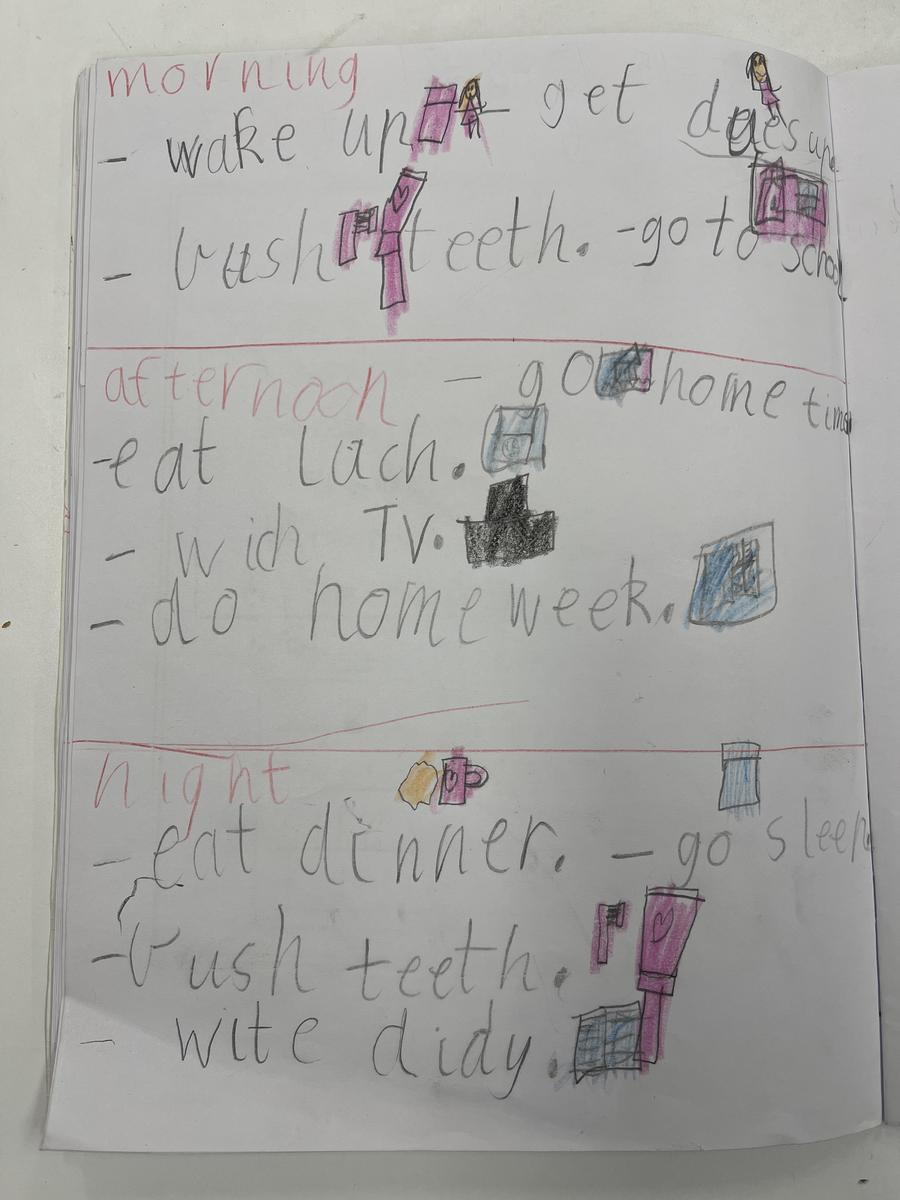 morning
- wake up - get dues up
- brush teeth. - go to school
afternoon - go home time
- eat lach.
- wich TV.
- do home week.
night
- eat dinner. - go sleep
- brush teeth.
- wite didy.